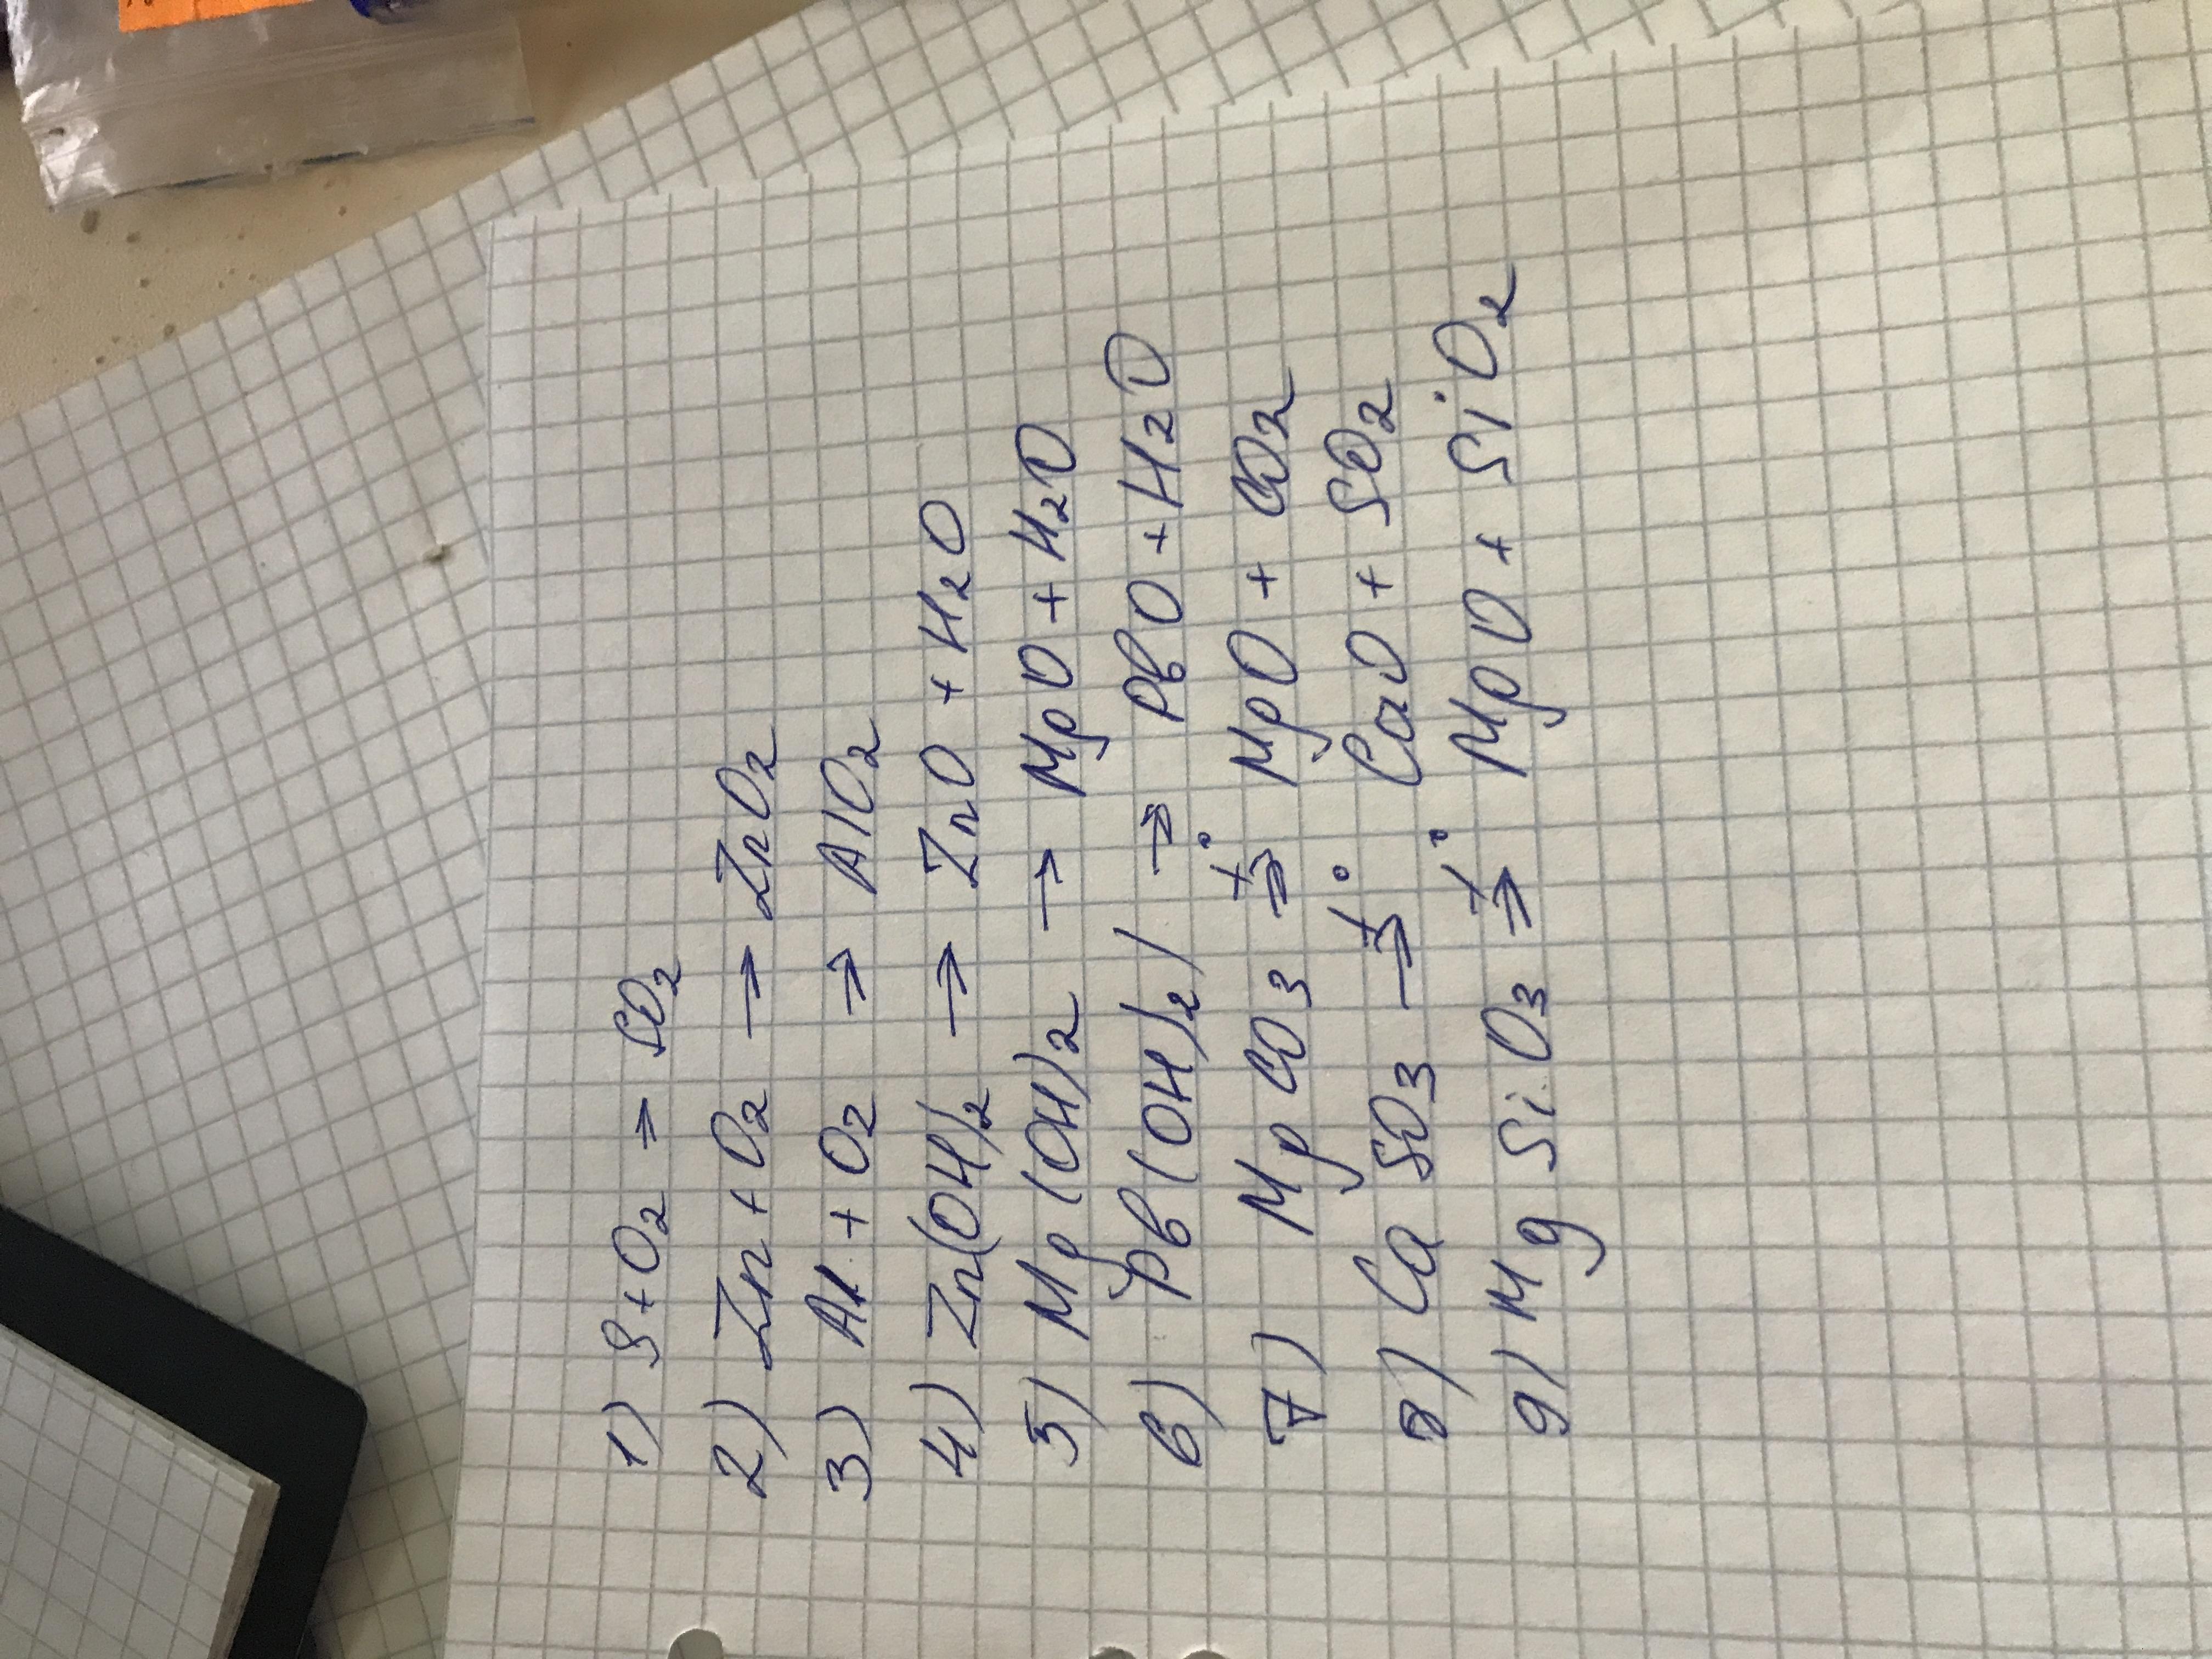 1) S + O₂ → SO₂
2) Zn + O₂ → ZnO₂
3) Al + O₂ → AlO₂
4) Zn(OH)₂ → ZnO + H₂O
5) Mg(OH)₂ → MgO + H₂O
6) Pb(OH)₂) → PbO + H₂O
7) MgCO₃ t°→ MgO + CO₂
8) CaSO₃ t°→ CaO + SO₂
9) MgSiO₃ t°→ MgO + SiO₂